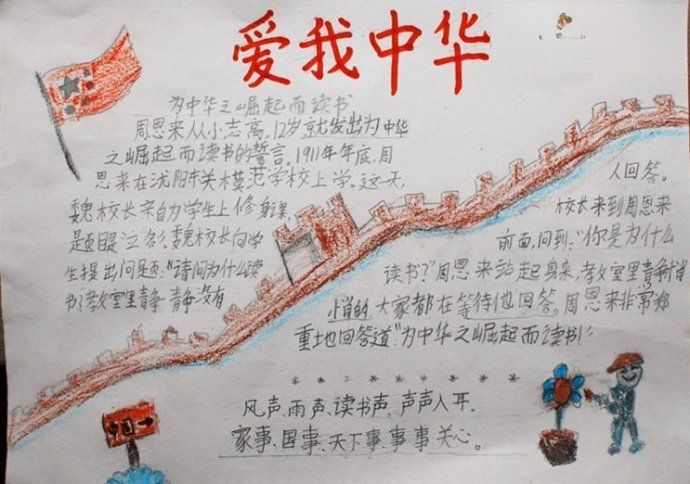 爱我中华
为中华之崛起而读书
周恩来从小志高,12岁就发出为中华
之崛起而读书的誓言。1911年年底,周
恩来在沈阳东关模范学校上学。这天,
魏校长亲自为学生上修身课,
题目是立名,魏校长向学
生提出问题:“请问为什么读
书?教室里静静没有
人回答。
校长来到周恩来
前面,问到:“你是为什么
读书?”周恩来站起身来,教室里静悄
悄的,大家都在等待他回答。周恩来非常郑
重地回答道:“为中华之崛起而读书!”
风声、雨声、读书声,声声入耳,
家事、国事、天下事,事事关心。